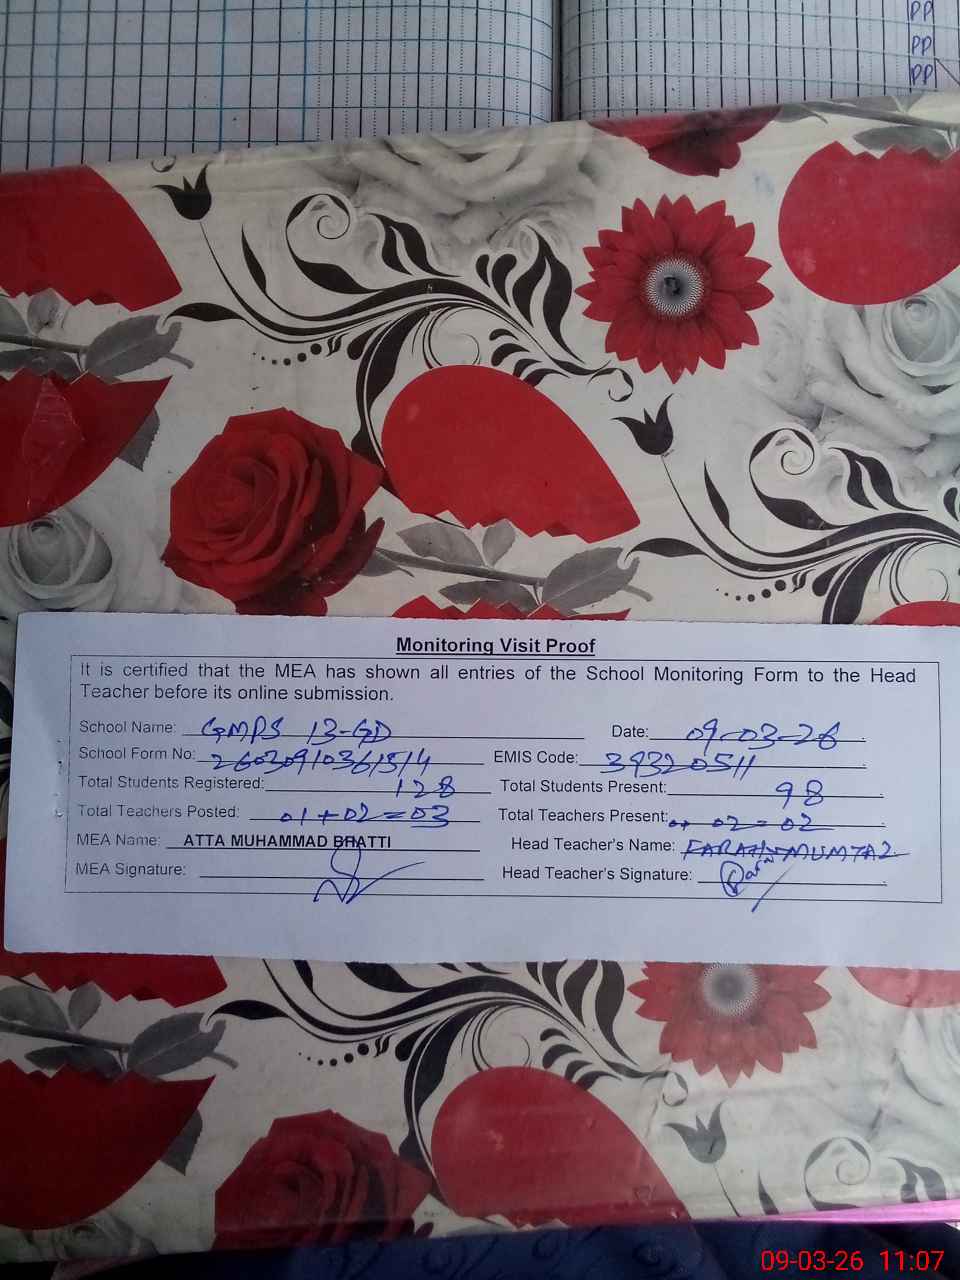 PP
PP
PP
Monitoring Visit Proof
It is certified that the MEA has shown all entries of the School Monitoring Form to the Head
Teacher before its online submission.
School Name: GMPS 13-GD Date: 09-03-26
School Form No: 26030910361514 EMIS Code: 39320511
Total Students Registered: 128 Total Students Present: 98
Total Teachers Posted: 01+02=03 Total Teachers Present: 02=02
MEA Name: ATTA MUHAMMAD BHATTI Head Teacher's Name: FARAH MUMTAZ
MEA Signature: Head Teacher's Signature:
09-03-26 11:07